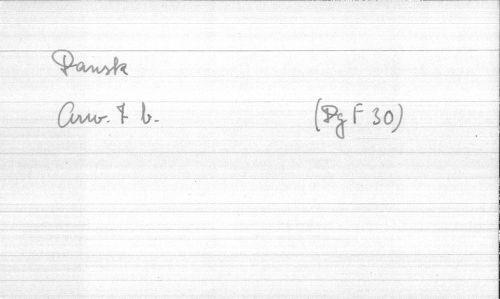 Dansk
Anv. t b. (Dg F 30)